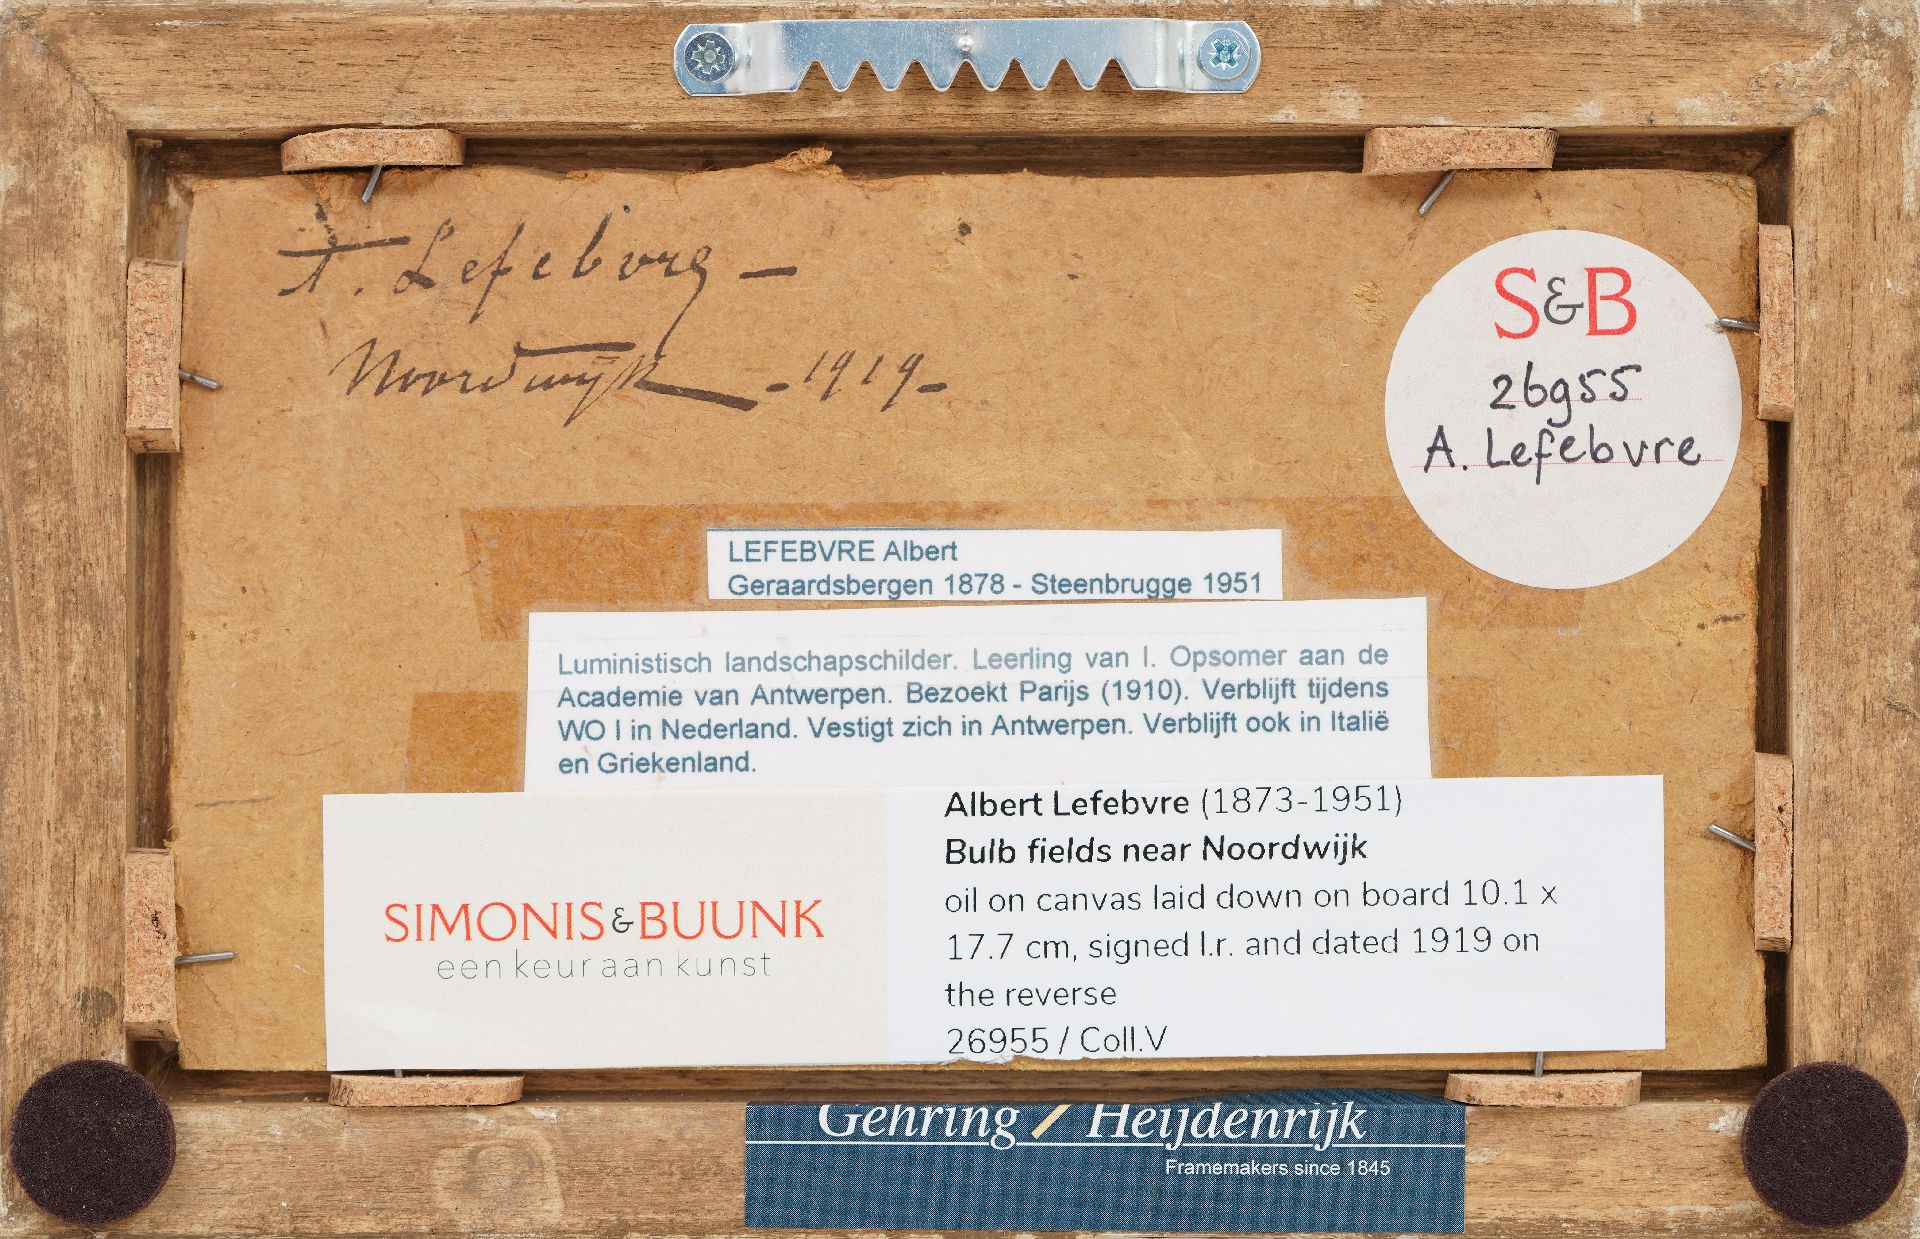 A. Lefebvre -
Noordwijk - 1919 -
S&B
26955
A. Lefebvre
LEFEBVRE Albert
Geraardsbergen 1878 - Steenbrugge 1951
Luministisch landschapschilder. Leerling van I. Opsomer aan de
Academie van Antwerpen. Bezoekt Parijs (1910). Verblijft tijdens
WO I in Nederland. Vestigt zich in Antwerpen. Verblijft ook in Italië
en Griekenland.
SIMONIS & BUUNK
een keur aan kunst
Albert Lefebvre (1873-1951)
Bulb fields near Noordwijk
oil on canvas laid down on board 10.1 x
17.7 cm, signed l.r. and dated 1919 on
the reverse
26955 / Coll.V
Gehring / Heijdenrijk
Framemakers since 1845